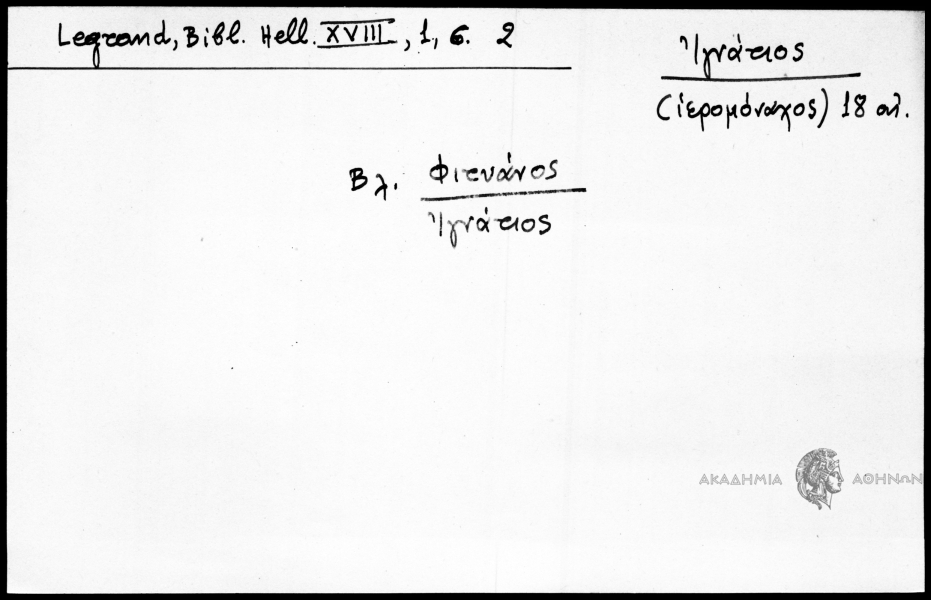 Legrand, Bibl. Hell. XVIII, 1, σ. 2
Ἰγνάτιος
(ἱερομόναχος) 18 αἰ.
Βλ. Φιτυάνος
Ἰγνάτιος
ΑΚΑΔΗΜΙΑ ΑΘΗΝΩΝ